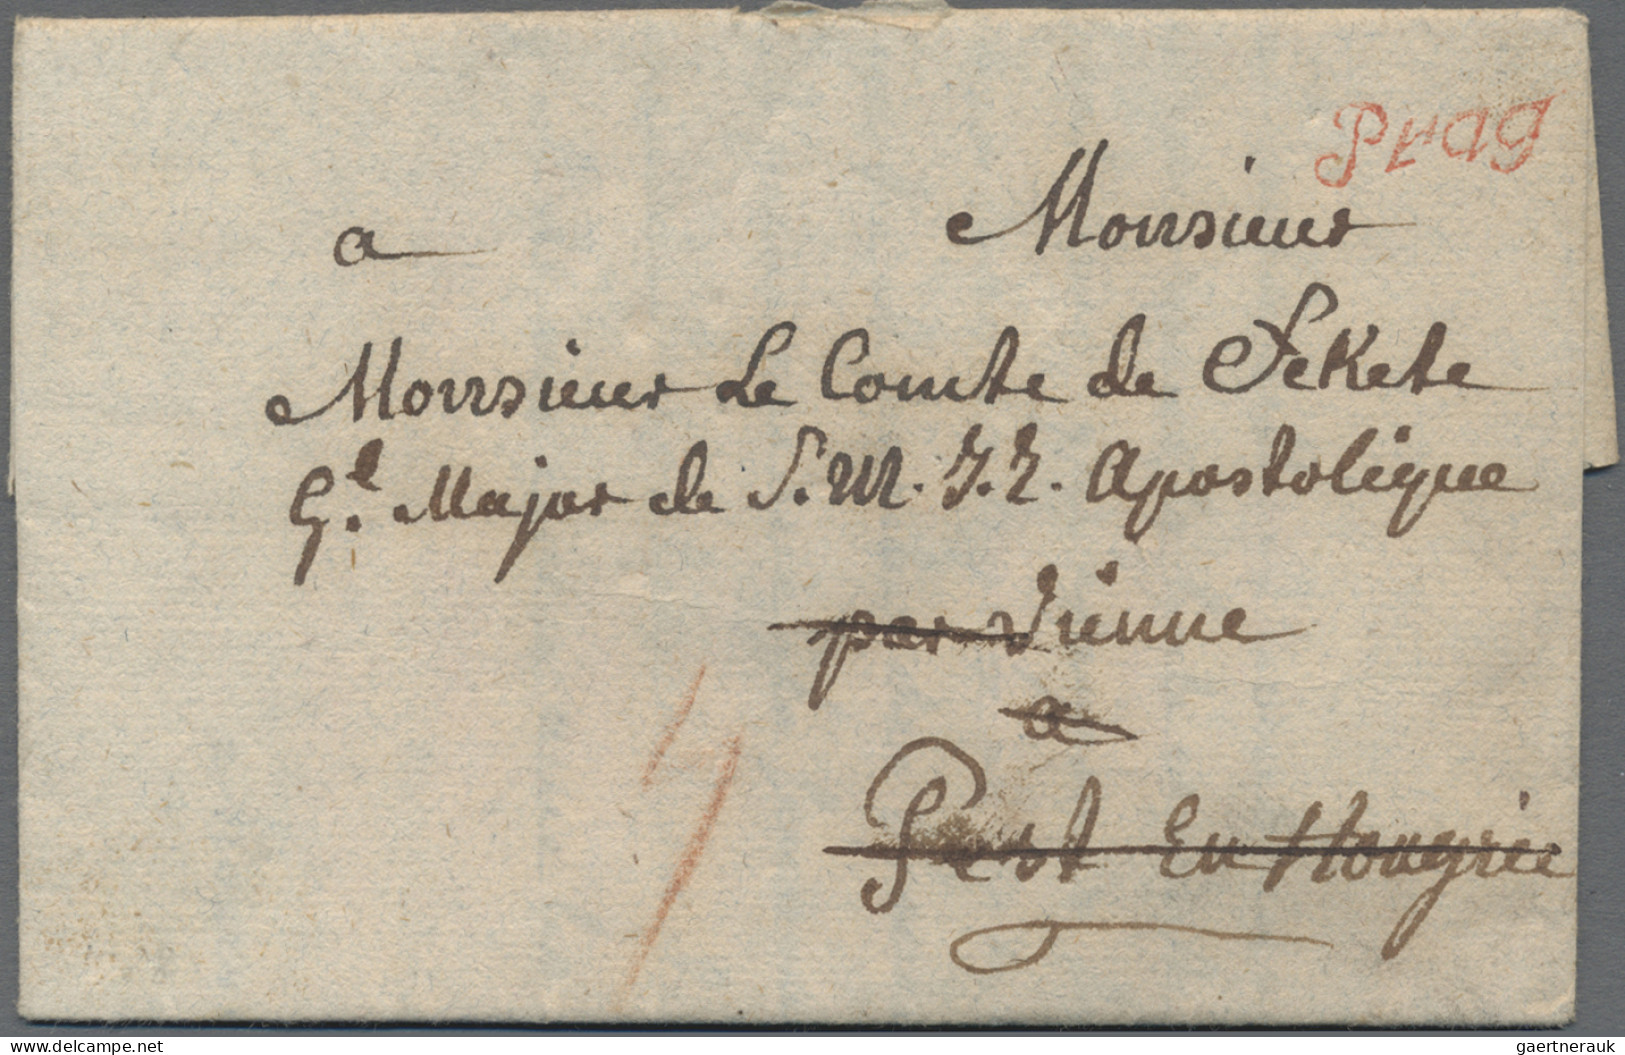 Prag
a Monsieur
Monsieur Le Comte de Fekete
G.l Major de S. M. I. R. Apostolique
par Vienne
a
Pest En Hongrie
delcampe.net
gaertnerauk